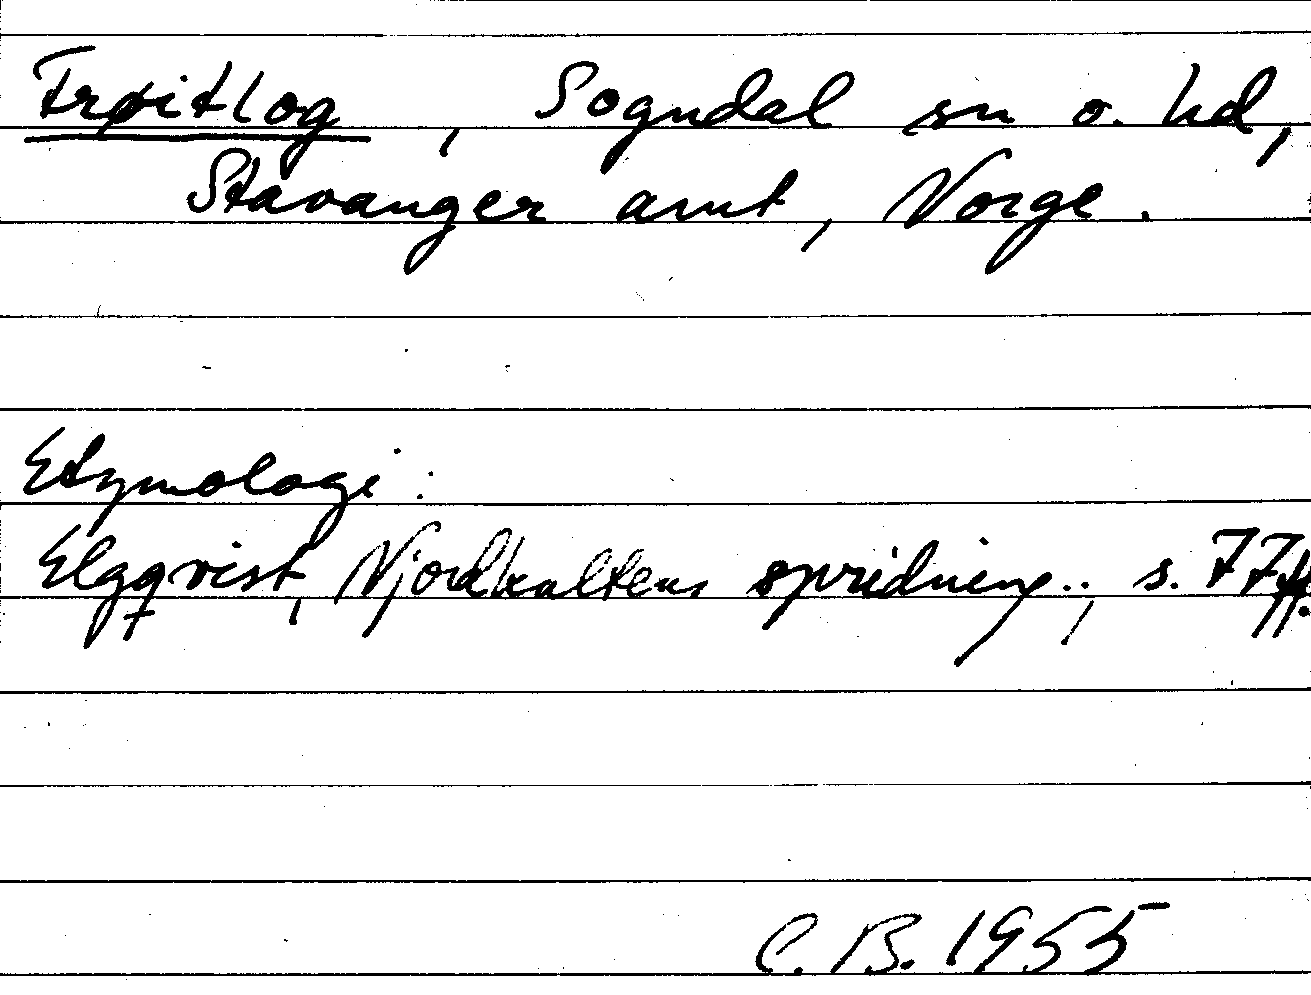 Frøitlog, Sogndal sn o. hd,
Stavanger amt, Norge.
Etymologi:
Elgqvist, Njordkultens spridning.., s. 77ff.
C. B. 1955